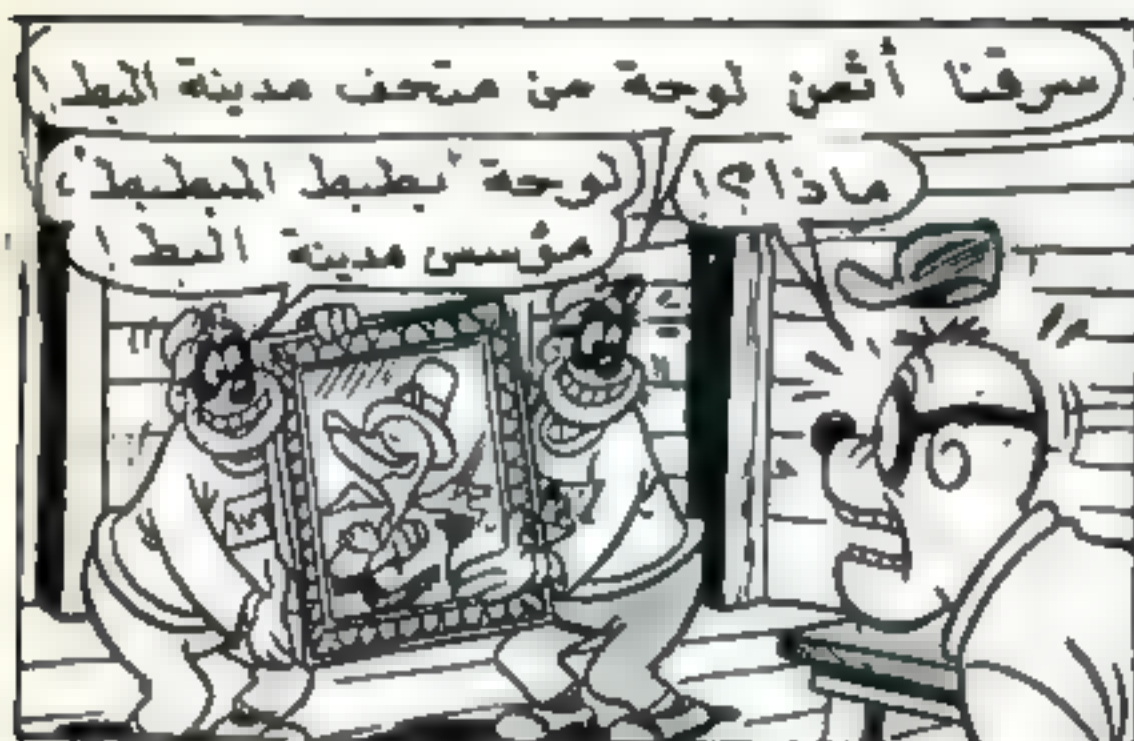 سرقنا أثمن لوحة من متحف مدينة البط !
ماذا ؟!
لوحة "بطبط المبطبط"
مؤسس مدينة البط !